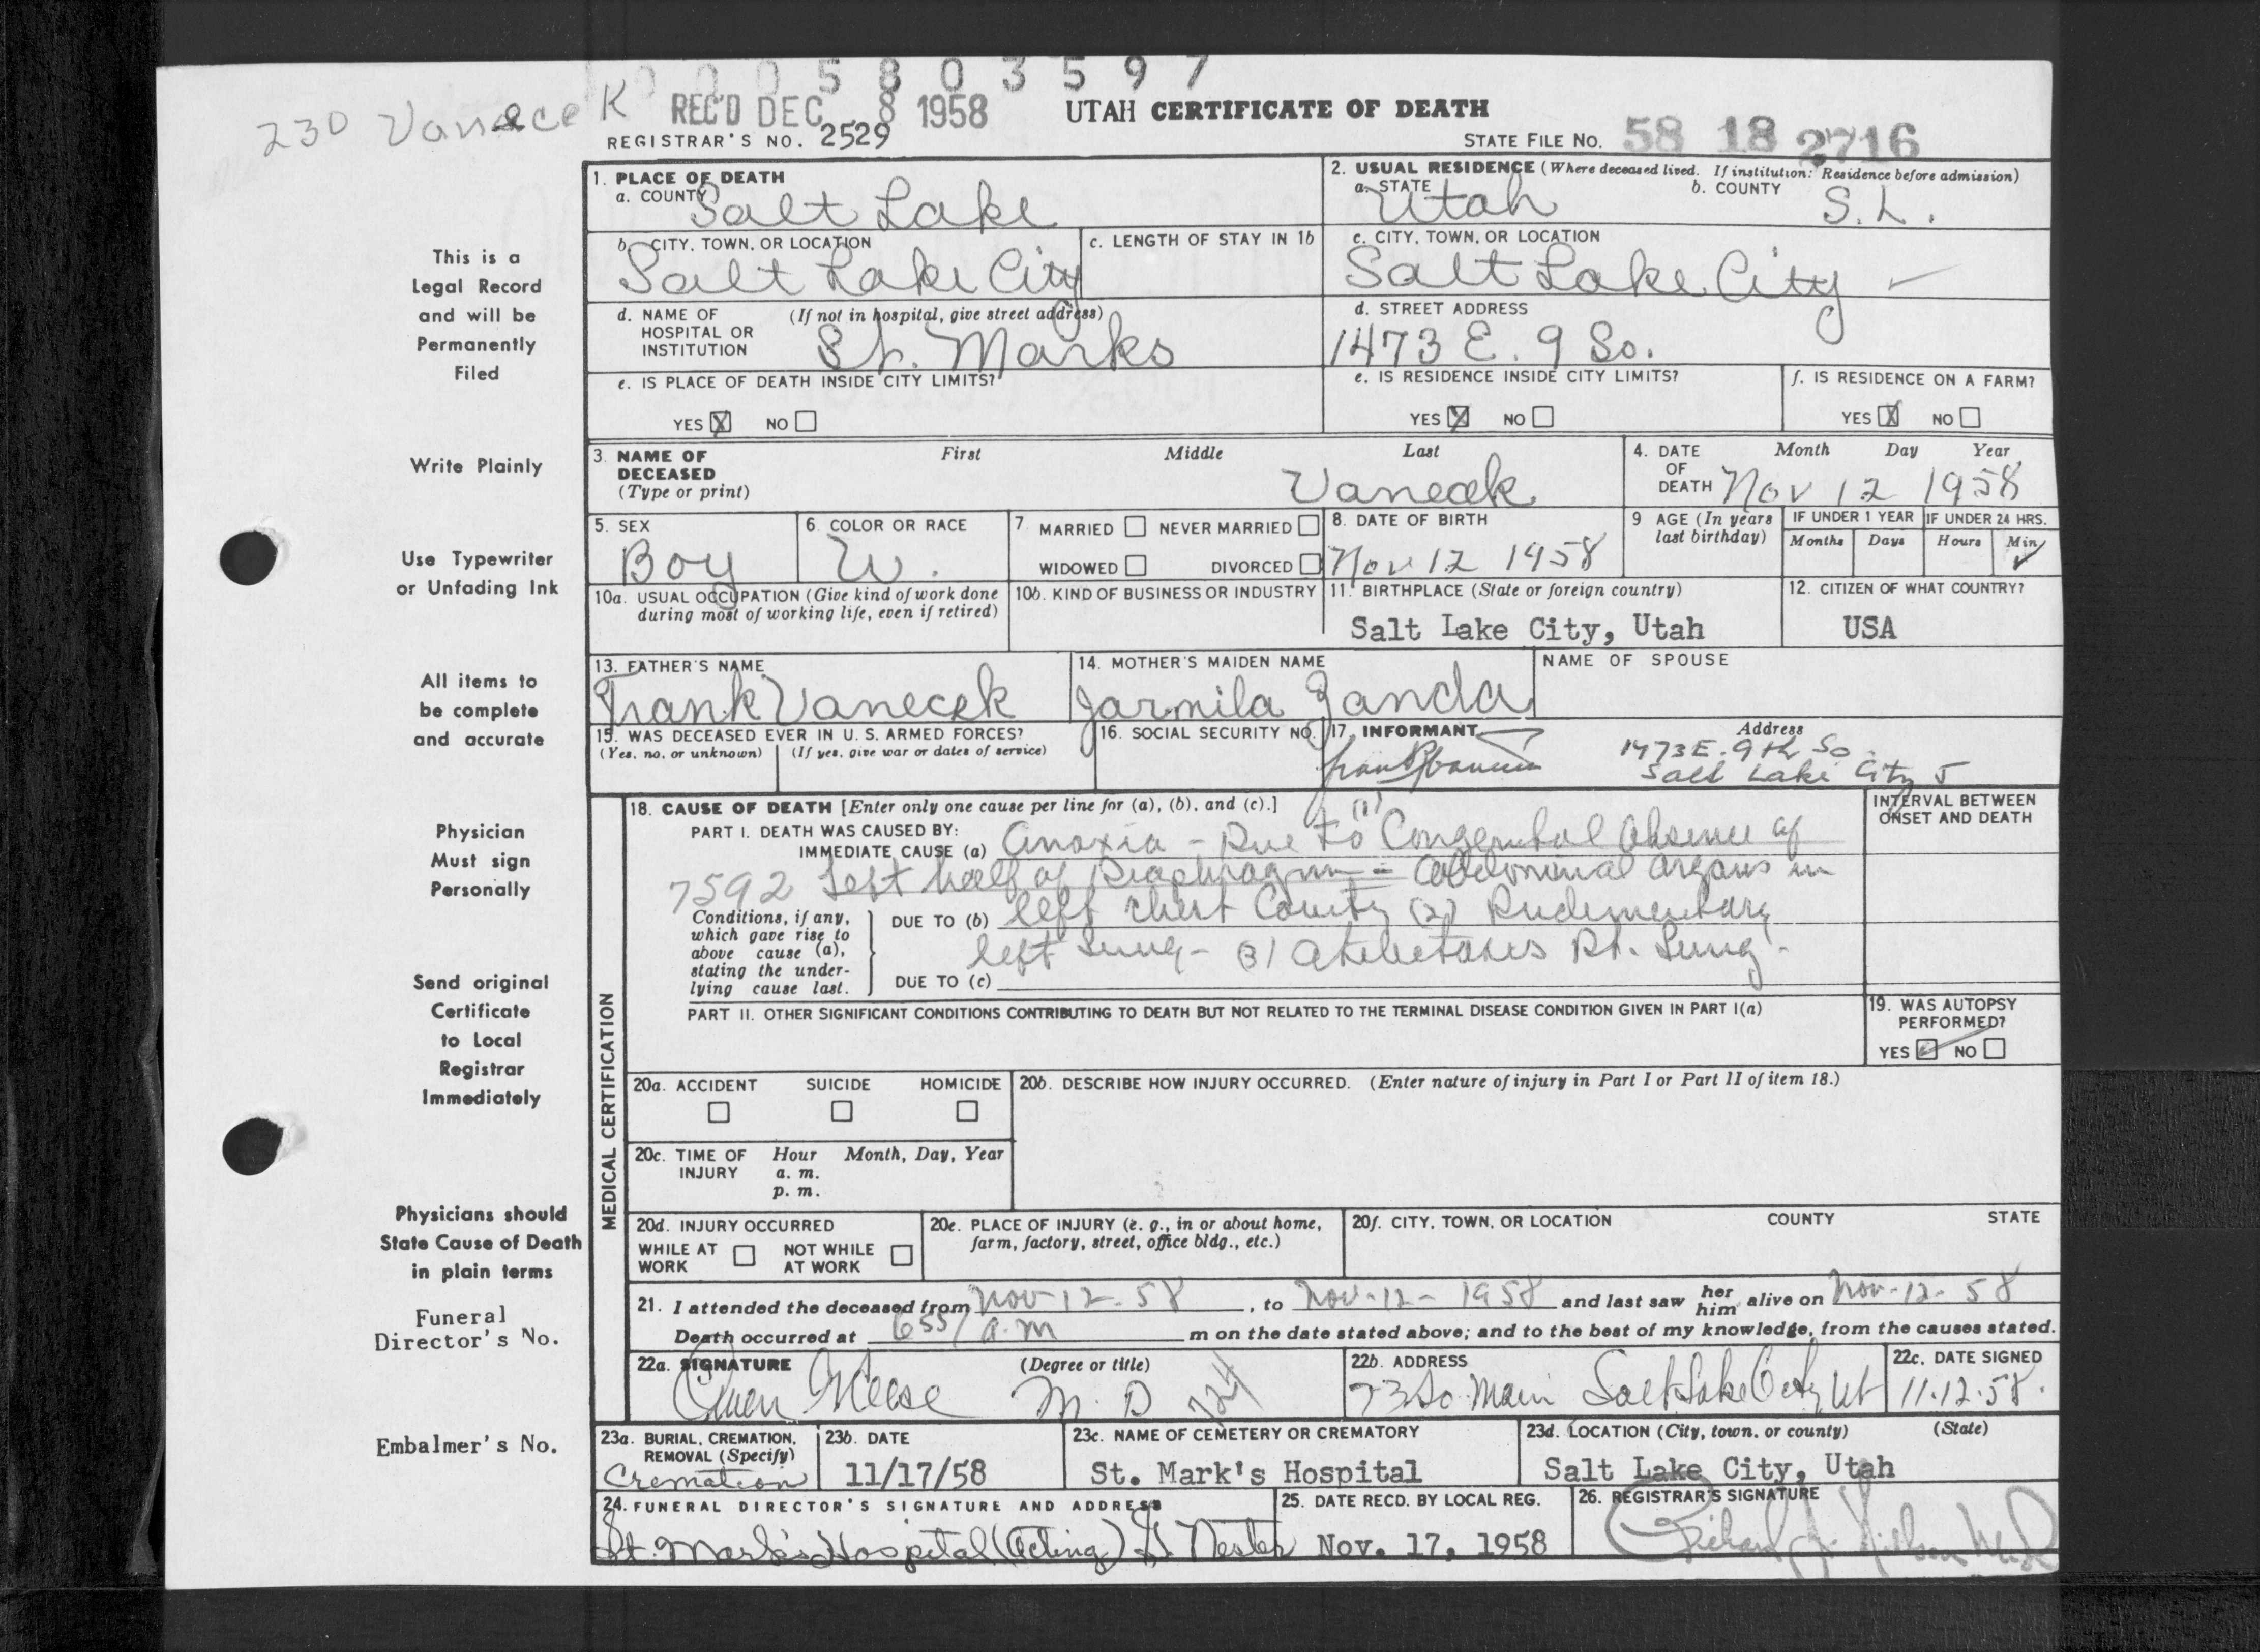 0 0 0 5 8 0 3 5 9 7
230 Vanecek REC'D DEC 8 1958 UTAH CERTIFICATE OF DEATH
REGISTRAR'S NO. 2529 STATE FILE NO. 58 18 2716
1. PLACE OF DEATH
a. COUNTY Salt Lake
2. USUAL RESIDENCE (Where deceased lived. If institution: Residence before admission)
a. STATE Utah b. COUNTY S.L.
b. CITY, TOWN, OR LOCATION Salt Lake City
c. LENGTH OF STAY IN 1b
c. CITY, TOWN, OR LOCATION Salt Lake City
d. NAME OF HOSPITAL OR INSTITUTION (If not in hospital, give street address) St. Marks
d. STREET ADDRESS 1473 E. 9 So.
e. IS PLACE OF DEATH INSIDE CITY LIMITS?
YES X NO
e. IS RESIDENCE INSIDE CITY LIMITS?
YES X NO
f. IS RESIDENCE ON A FARM?
YES X NO
3. NAME OF DECEASED (Type or print) First Middle Last
Vanecek
4. DATE OF DEATH Month Day Year
Nov 12 1958
5. SEX Boy
6. COLOR OR RACE W.
7. MARRIED NEVER MARRIED
WIDOWED DIVORCED
8. DATE OF BIRTH Nov 12 1958
9 AGE (In years last birthday)
IF UNDER 1 YEAR Months Days
IF UNDER 24 HRS. Hours Min ✓
10a. USUAL OCCUPATION (Give kind of work done during most of working life, even if retired)
10b. KIND OF BUSINESS OR INDUSTRY
11. BIRTHPLACE (State or foreign country)
Salt Lake City, Utah
12. CITIZEN OF WHAT COUNTRY?
USA
13. FATHER'S NAME
Frank Vanecek
14. MOTHER'S MAIDEN NAME
Jarmila Janda
NAME OF SPOUSE
15. WAS DECEASED EVER IN U. S. ARMED FORCES?
(Yes, no, or unknown) (If yes, give war or dates of service)
16. SOCIAL SECURITY NO.
17. INFORMANT Address
1473 E. 9th So.
Salt Lake City 5
18. CAUSE OF DEATH [Enter only one cause per line for (a), (b), and (c).]
INTERVAL BETWEEN ONSET AND DEATH
PART I. DEATH WAS CAUSED BY:
IMMEDIATE CAUSE (a) Anoxia - Due to (1) Congenital Absence of
7592 Left half of Diaphragm = Abdominal organs in
Conditions, if any, which gave rise to above cause (a), stating the underlying cause last.
DUE TO (b) left chest Cavity (2) Rudimentary
left Lung - (3) Atelectasis Rt. Lung -
DUE TO (c)
PART II. OTHER SIGNIFICANT CONDITIONS CONTRIBUTING TO DEATH BUT NOT RELATED TO THE TERMINAL DISEASE CONDITION GIVEN IN PART I(a)
19. WAS AUTOPSY PERFORMED?
YES ✓ NO
MEDICAL CERTIFICATION
20a. ACCIDENT SUICIDE HOMICIDE
20b. DESCRIBE HOW INJURY OCCURRED. (Enter nature of injury in Part I or Part II of item 18.)
20c. TIME OF INJURY Hour a. m. p. m. Month, Day, Year
20d. INJURY OCCURRED
WHILE AT WORK NOT WHILE AT WORK
20e. PLACE OF INJURY (e. g., in or about home, farm, factory, street, office bldg., etc.)
20f. CITY, TOWN, OR LOCATION COUNTY STATE
21. I attended the deceased from Nov-12-58, to Nov-12-1958 and last saw her him alive on Nov-12-58
Death occurred at 655/ a.m m on the date stated above; and to the best of my knowledge, from the causes stated.
22a. SIGNATURE (Degree or title)
Owen Reese M.D
22b. ADDRESS
73 So. Main Salt Lake City Ut
22c. DATE SIGNED
11-12-58.
23a. BURIAL, CREMATION, REMOVAL (Specify)
Cremation
23b. DATE
11/17/58
23c. NAME OF CEMETERY OR CREMATORY
St. Mark's Hospital
23d. LOCATION (City, town, or county) (State)
Salt Lake City, Utah
24. FUNERAL DIRECTOR'S SIGNATURE AND ADDRESS
St. Mark's Hospital (Acting)
25. DATE RECD. BY LOCAL REG.
Nov. 17, 1958
26. REGISTRAR'S SIGNATURE
This is a
Legal Record
and will be
Permanently
Filed
Write Plainly
Use Typewriter
or Unfading Ink
All items to
be complete
and accurate
Physician
Must sign
Personally
Send original
Certificate
to Local
Registrar
Immediately
Physicians should
State Cause of Death
in plain terms
Funeral
Director's No.
Embalmer's No.